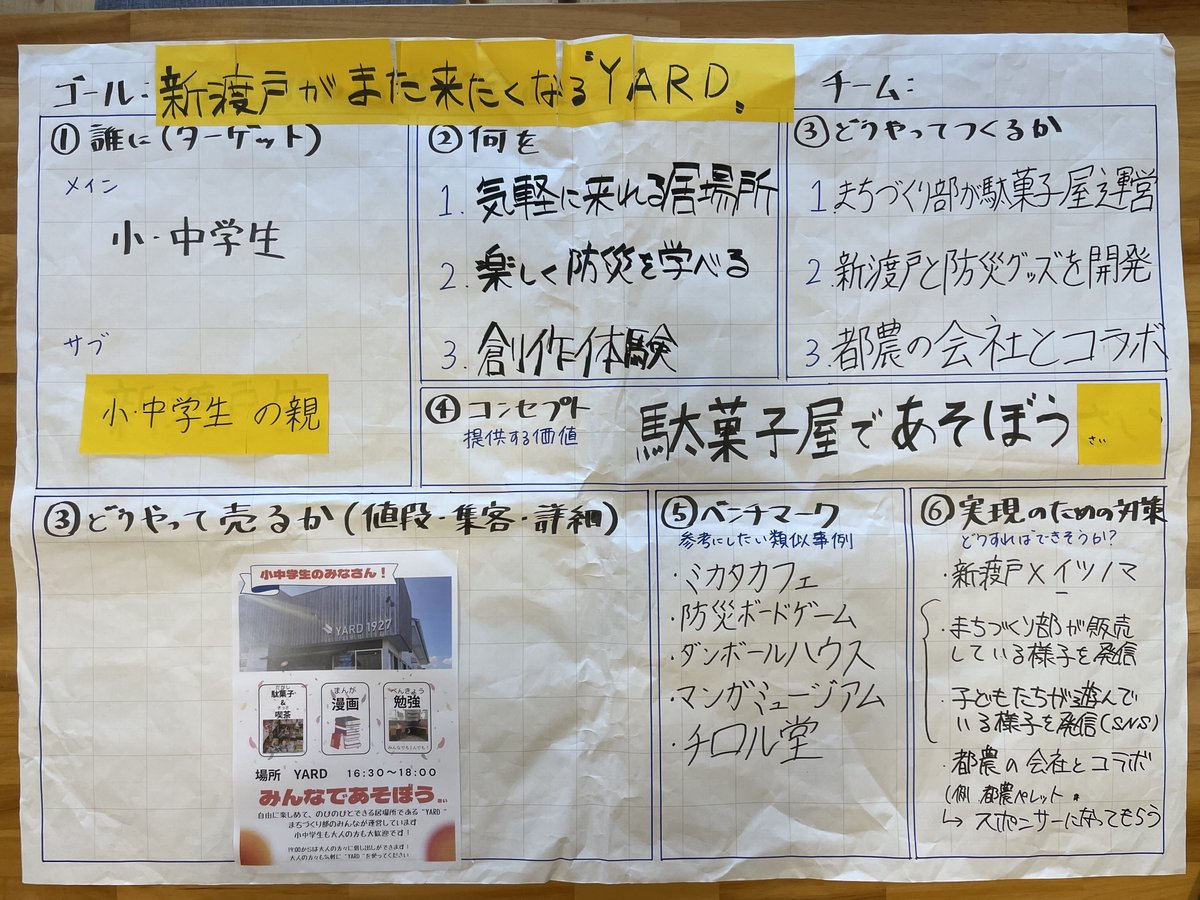 ゴール:新渡戸がまた来たくなる"YARD"
チーム:
①誰に(ターゲット)
メイン
小・中学生
サブ
小・中学生の親
②何を
1.気軽に来れる居場所
2.楽しく防災を学べる
3.創作体験
③どうやってつくるか
1.まちづくり部が駄菓子屋運営
2.新渡戸と防災グッズを開発
3.都農の会社とコラボ
④コンセプト
提供する価値
駄菓子屋であそぼう
さい
③どうやって売るか(値段・集客・詳細)
小中学生のみなさん!
YARD 1927
だがし
駄菓子
&
きっさ
喫茶
まんが
漫画
べんきょう
勉強
みんなでも1人でも!
場所 YARD 16:30~18:00
みんなであそぼう
自由に楽しめて、のびのびとできる居場所である"YARD"
まちづくり部のみんなが運営しています
小中学生も大人の方も大歓迎です!
19:00からは大人の方々に貸し出しができます!
大人の方々も気軽に"YARD"を使ってください
⑤ベンチマーク
参考にしたい類似事例
・ミカタカフェ
・防災ボードゲーム
・ダンボールハウス
・マンガミュージアム
・チロル堂
⑥実現のための対策
どうすればできそうか?
・新渡戸×イツノマ
・まちづくり部が販売
している様子を発信
・子どもたちが遊んで
いる様子を発信(SNS)
・都農の会社とコラボ
(例 都農ペレット
↳スポンサーになってもらう